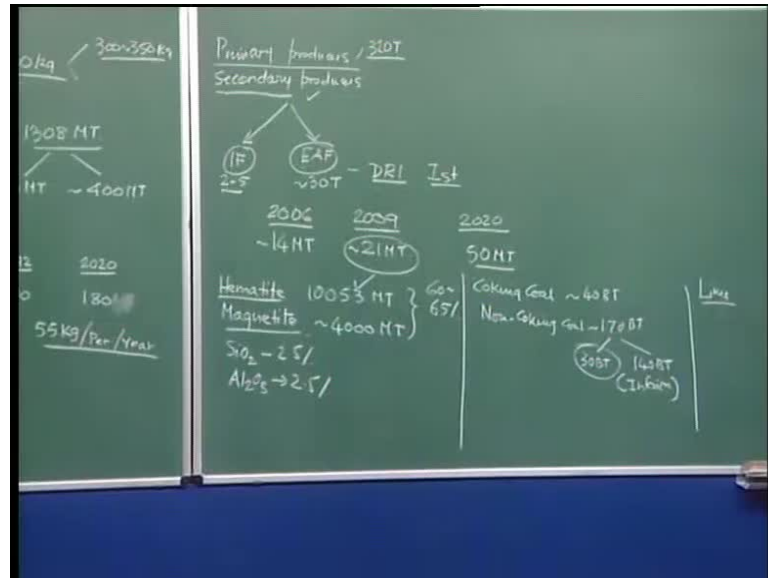 0kg 300~350kg
1308 MT
MT ~400MT
12 2020
0 180
55kg/Per/Year
Primary producers / 320T
Secondary producers ✓
IF EAF
2-5 ~30T - DRI Ist
2006 2009 2020
~14MT ~21MT 50MT
Hematite 10053 MT } 60~
Magnetite ~4000MT } 65%
SiO2 - 2.5%
Al2O3 → 2.5%
Coking Coal ~40BT
Non-Coking Coal ~170BT
30BT 140BT